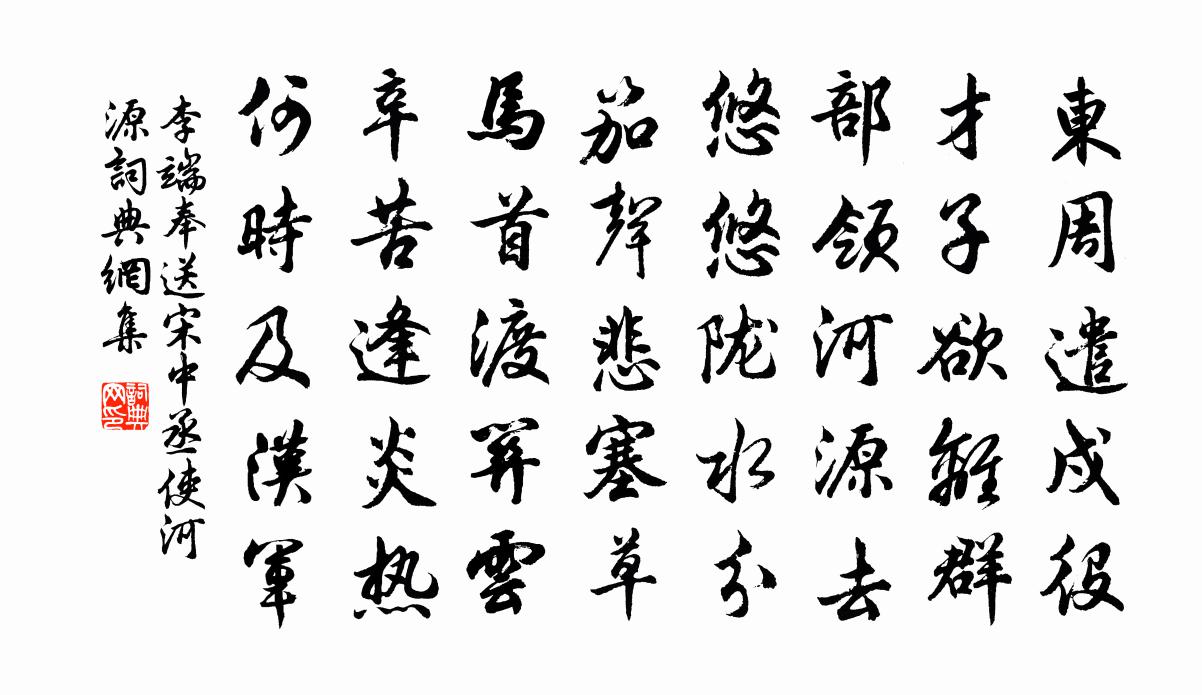 東周遣戍役
才子欲離群
部領河源去
悠悠陇水分
笳聲悲塞草
馬首渡關雲
辛苦逢炎热
何時及漢軍
李端奉送宋中丞使河
源詞典網集
詞典
网印